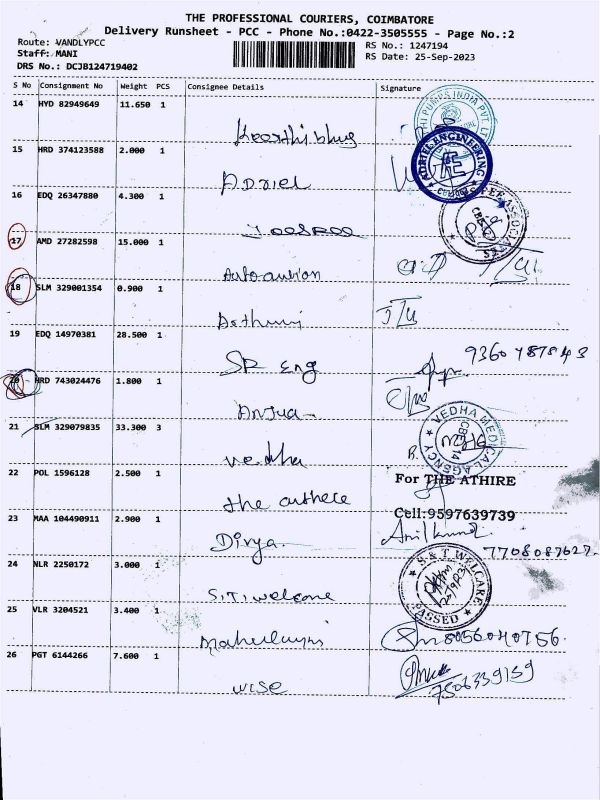 THE PROFESSIONAL COURIERS, COIMBATORE
Delivery Runsheet - PCC - Phone No.:0422-3505555 - Page No.:2
Route: VANDLYPCC
Staff: MANI
DRS No.: DCJB124719402
RS No.: 1247194
RS Date: 25-Sep-2023
S No Consignment No Weight PCS Consignee Details Signature
14 HYD 82949649 11.650 1
15 HRD 374123588 2.000 1 Adriel
ADRIEL ENGINEERING
16 EDQ 26347880 4.300 1
17 AMD 27282598 15.000 1
18 SLM 329001354 0.900 1
19 EDQ 14970381 28.500 1 SP Eng
9360787843
20 HRD 743024476 1.800 1
21 SLM 329079835 33.300 3 vedha
VEDHA MEDICAL AGENCY
CBE-14
22 POL 1596128 2.500 1 the
For THE ATHIRE
Cell:9597639739
23 MAA 104490911 2.900 1 Divya
7708087627
24 NLR 2250172 3.000 1
S & T WELCARE
PASSED
25 VLR 3204521 3.400 1
8056040756
26 PGT 6144266 7.600 1 wise